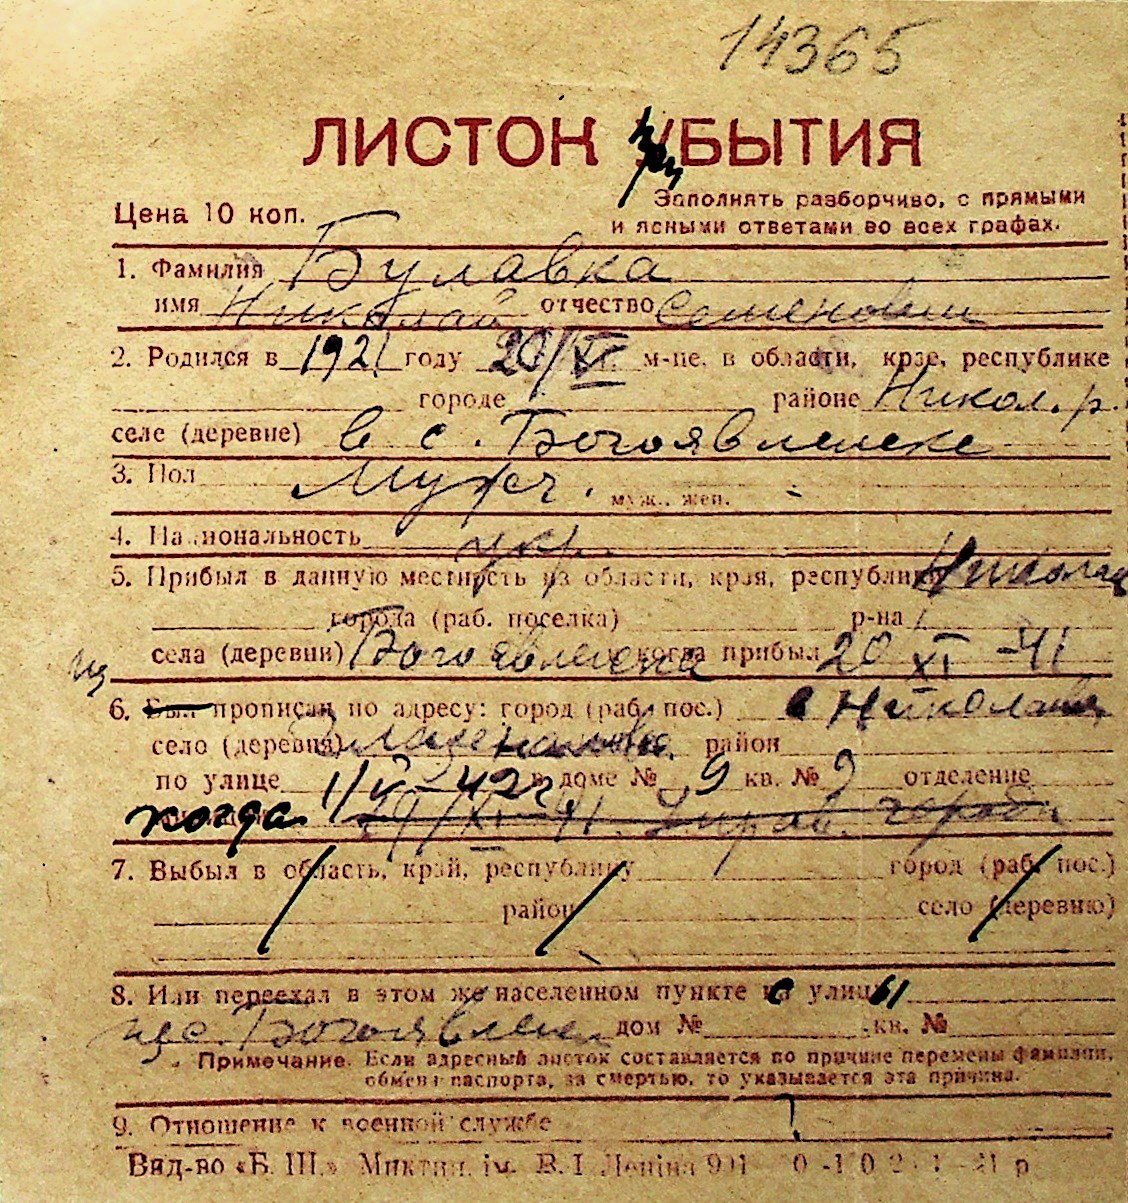 14365
ЛИСТОК УБЫТИЯ
Цена 10 коп.
Заполнять разборчиво, с прямыми
и ясными ответами во всех графах.
1. Фамилия Булавка
имя Николай отчество Семенович
2. Родился в 1921 году 20/VI м-це, в области, крае, республике
городе районе Никол. р.
селе (деревне) в с. Богоявленске
3. Пол Муж. муж., жен.
4. Национальность укр.
5. Прибыл в данную местность из области, края, республики Николаев
города (раб. поселка) р-на
из села (деревни) Богоявленска когда прибыл 20 XI - 41
6. Был прописан по адресу: город (раб. пос.) Николаев
село (деревня) район
по улице 1/V - 42 г. в доме № 9 кв. № 9 отделение
когда 29/XI - 41.
7. Выбыл в область, край, республику город (раб. пос.)
район село (деревню)
8. Или переехал в этом же населенном пункте с улицы
из с. Богоявленск дом № кв. №
Примечание. Если адресный листок составляется по причине перемены фамилии,
обмена паспорта, за смертью, то указывается эта причина.
9. Отношение к военной службе
Вид-во «Б. Ш.» Микгип. ім. В. І Леніна